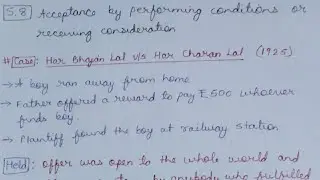 S.8 Acceptance by performing conditions or
receiving consideration
# Case: Har Bhajan Lal v/s Har Charan Lal (1925)
→ A boy ran away from home
→ Father offered a reward to pay ₹500 whoever
finds boy.
→ Plaintiff found the boy at railway station
Held: offer was open to the whole world and
by anybody who fulfilled